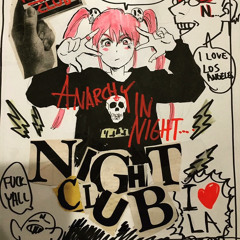 N.
I LOVE
LOS
ANGELES
ANARCHY IN
NIGHT...
NIGHT
CLUB
FUCK
Y'ALL
I ♥
LA